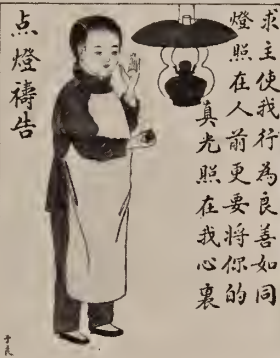 求主使我行為良善如同
燈照在人前更要將你的
真光照在我心裏
点燈禱告